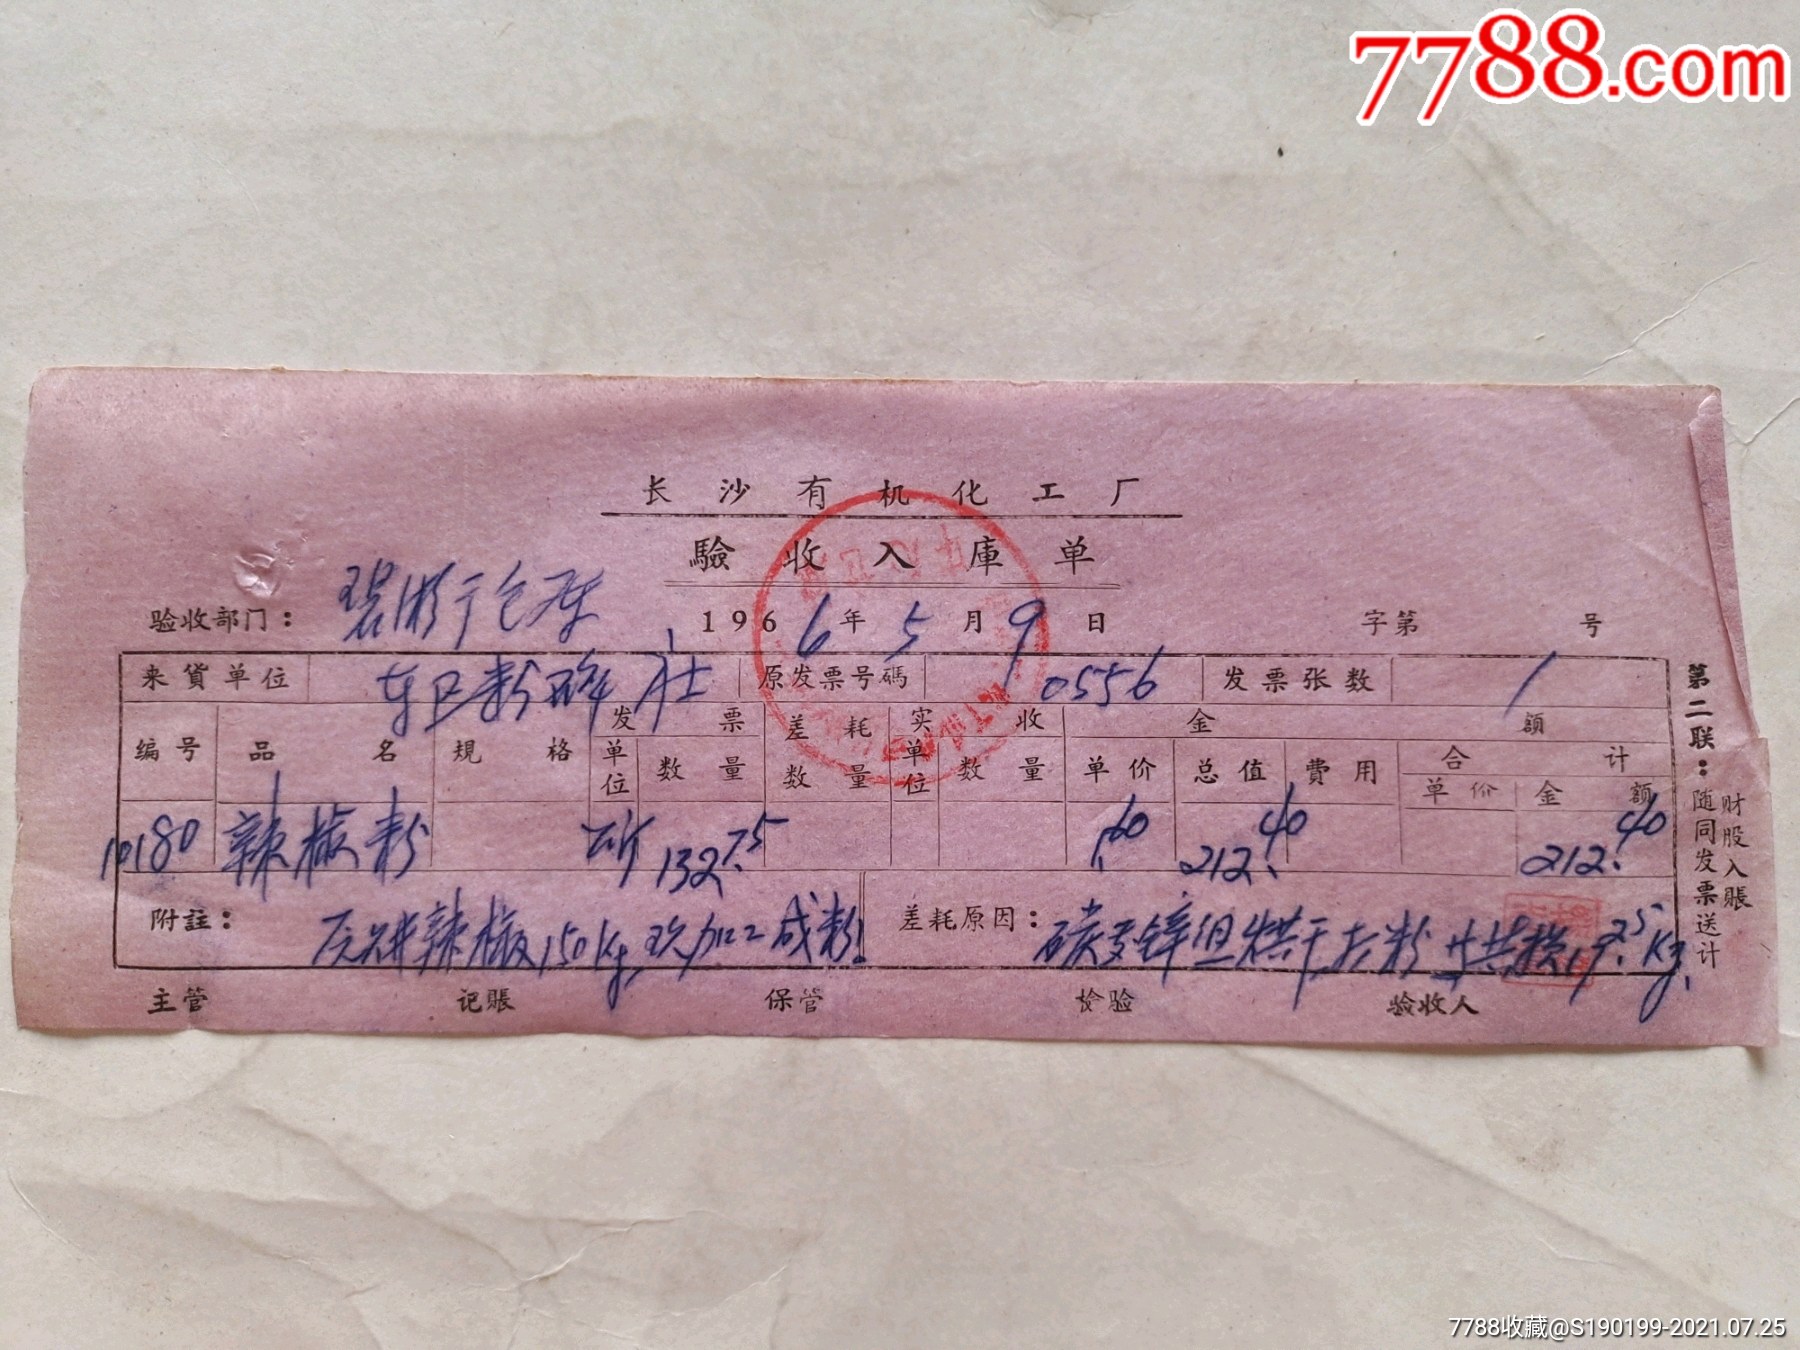 7788.com
长沙有机化工厂
驗收入庫单
验收部门：碧湘丁仓库
1966年5月9日 字第 号
来貨单位 东区粉碎社 原发票号碼 10556 发票张数 1
编号 品名 規格 发票 差耗 实收 金額
单位 数量 数量 单位 数量 单价 总值 費用 合计
单价 金額
10180 辣椒粉 132.75 1.60 212.40 212.40
附註： 辣椒150kg，现加工成粉。
差耗原因： 烘干 粉 共损17.25kg.
主管 记賬 保管 检验 验收人
第二联：随同发票送计
财股入賬
7788收藏@S190199-2021.07.25